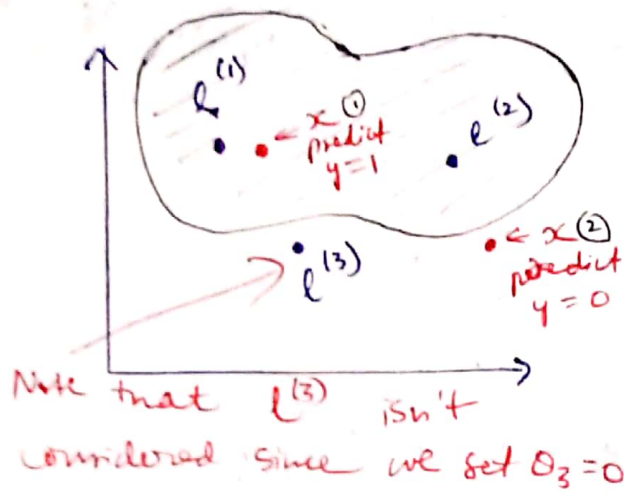 l⁽¹⁾
← x ①
predict
y=1
l⁽²⁾
l⁽³⁾
← x ②
predict
y = 0
Note that l⁽³⁾ isn't
considered since we set θ₃=0